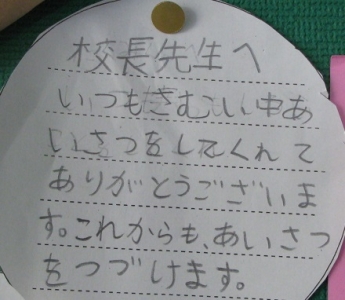 校長先生へ
いつもさむい中あ
いさつをしてくれて
ありがとうござい
ます。これからも、あいさつ
をつづけます。